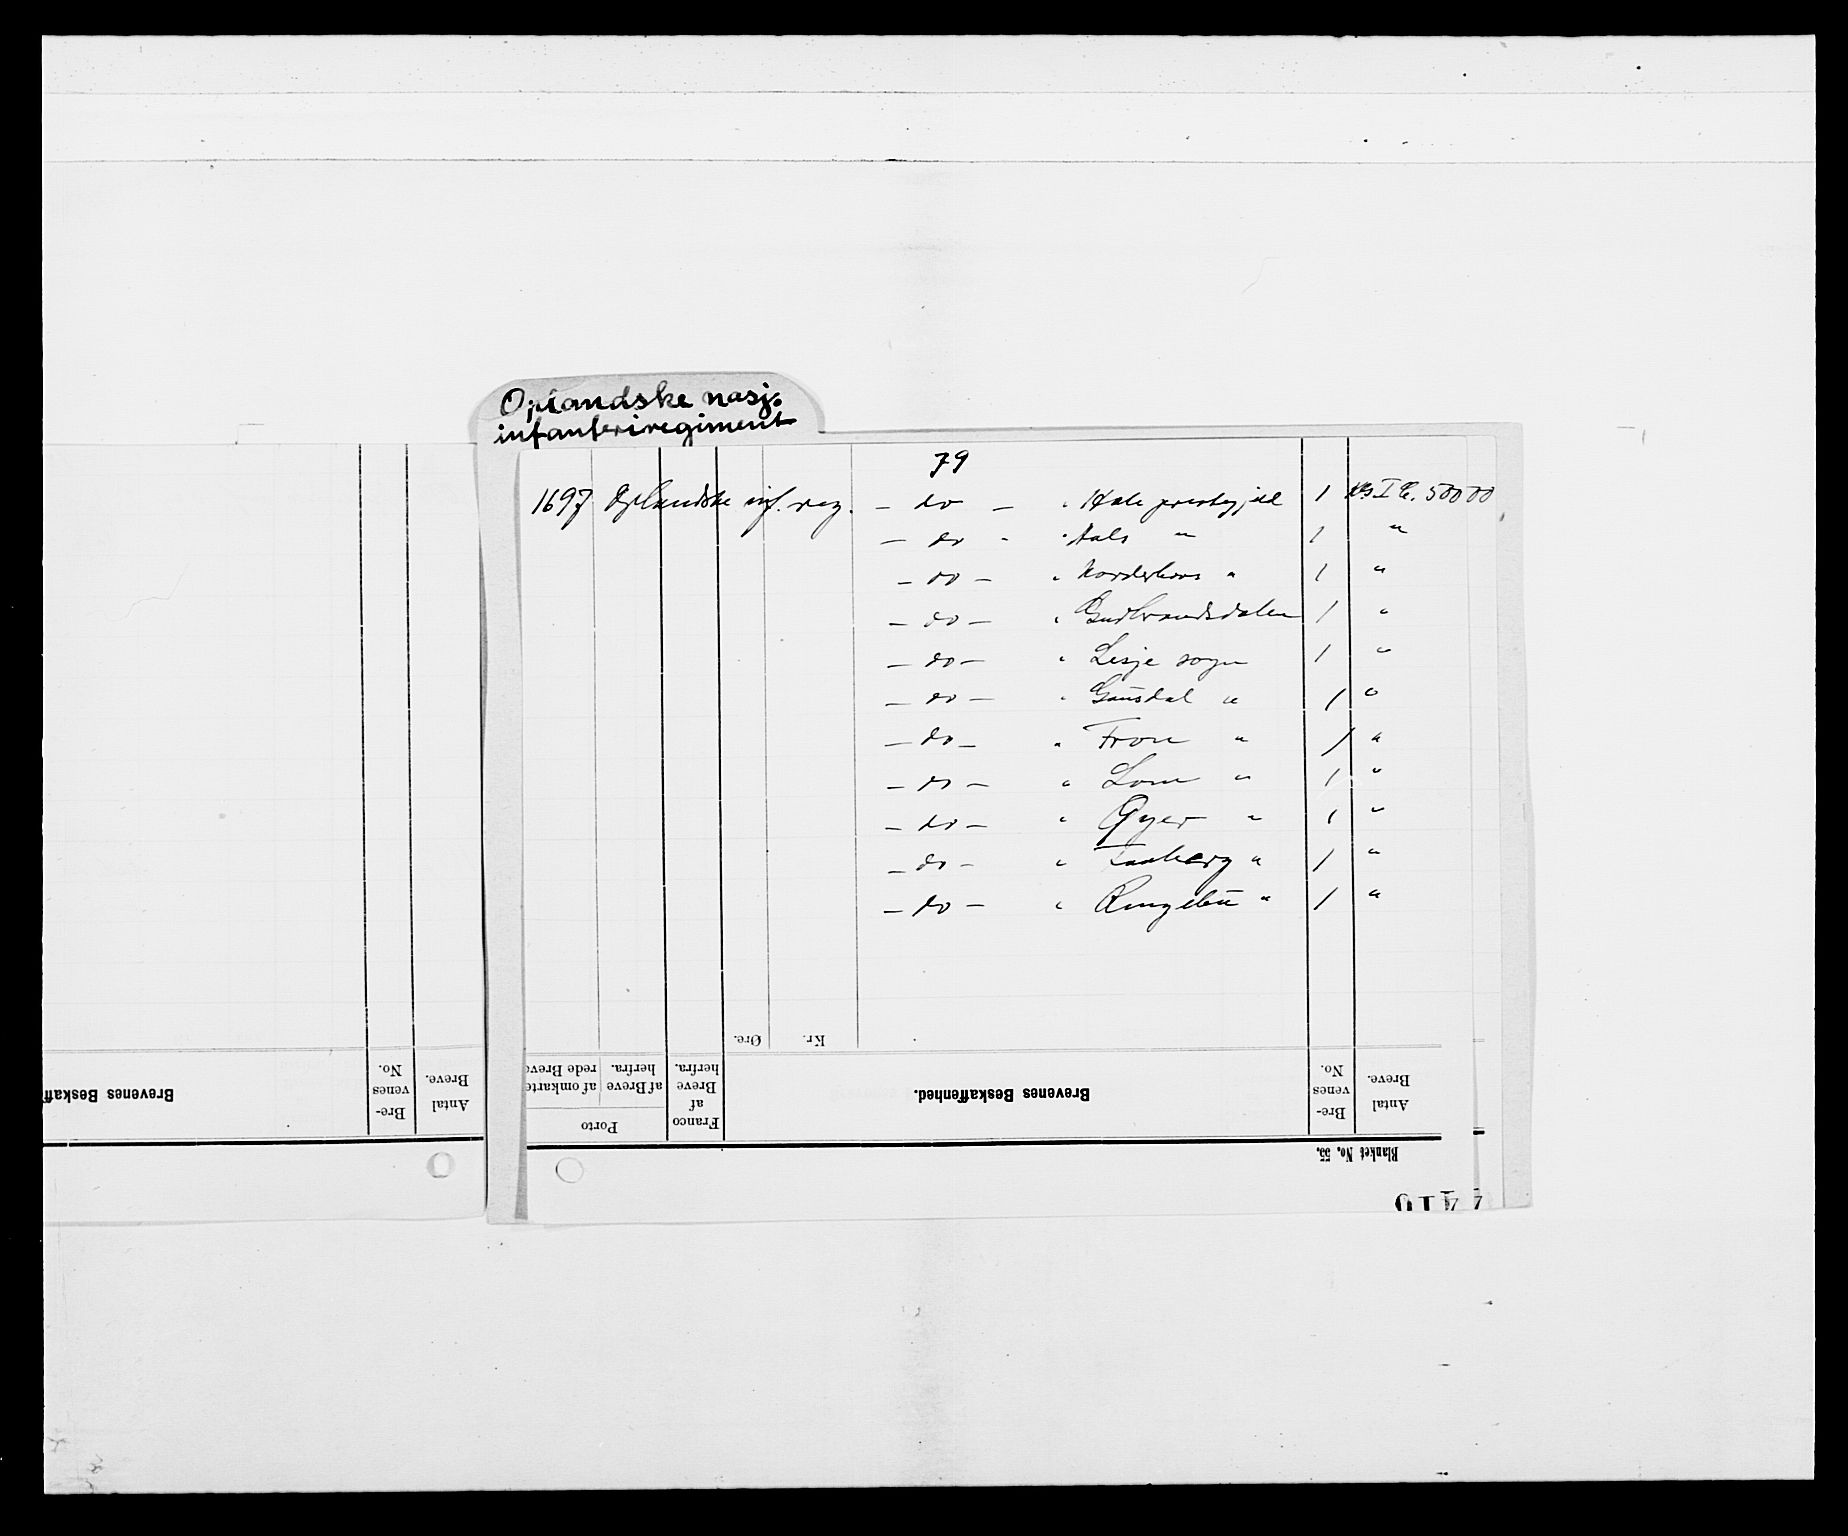 Oplandske nasj.
infanteriregiment
79
1697 Oplandske inf. reg. — do — " Hole prestegjeld 1 50000
— do - " Aals " 1 "
— do — " Norderhovs " 1 "
— do — " Gudbrandsdalen 1 "
— do — " Lesje sogn 1 "
— do — " Gausdal " 1 "
— do — " Fron " 1 "
— do — " Lom " 1 "
— do — " Øyer " 1 "
— do — " Faaberg " 1 "
— do — " Ringebu " 1 "
Blanket No. 55.
Antal Breve.
Bre-venes No.
Brevenes Beskaffenhed.
Kr.
Øre.
Franco af Breve herfra.
Porto
af Breve herfra.
af omkarterede Breve
Antal Breve.
Bre-venes No.
Brevenes Beskaff